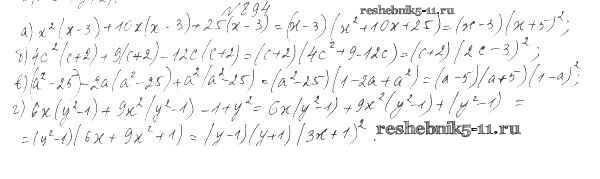 №294 reshebnik5-11.ru
а) x²(x-3)+10x(x-3)+25(x-3)=(x-3)(x²+10x+25)=(x-3)(x+5)²;
б) 4c²(c+2)+9(c+2)-12c(c+2)=(c+2)(4c²+9-12c)=(c+2)(2c-3)²;
в) (a²-25)-2a(a²-25)+a²(a²-25)=(a²-25)(1-2a+a²)=(a-5)(a+5)(1-a)²;
г) 6x(y²-1)+9x²(y²-1)-1+y²=6x(y²-1)+9x²(y²-1)+(y²-1) =
=(y²-1)(6x+9x²+1)=(y-1)(y+1)(3x+1)².
reshebnik5-11.ru